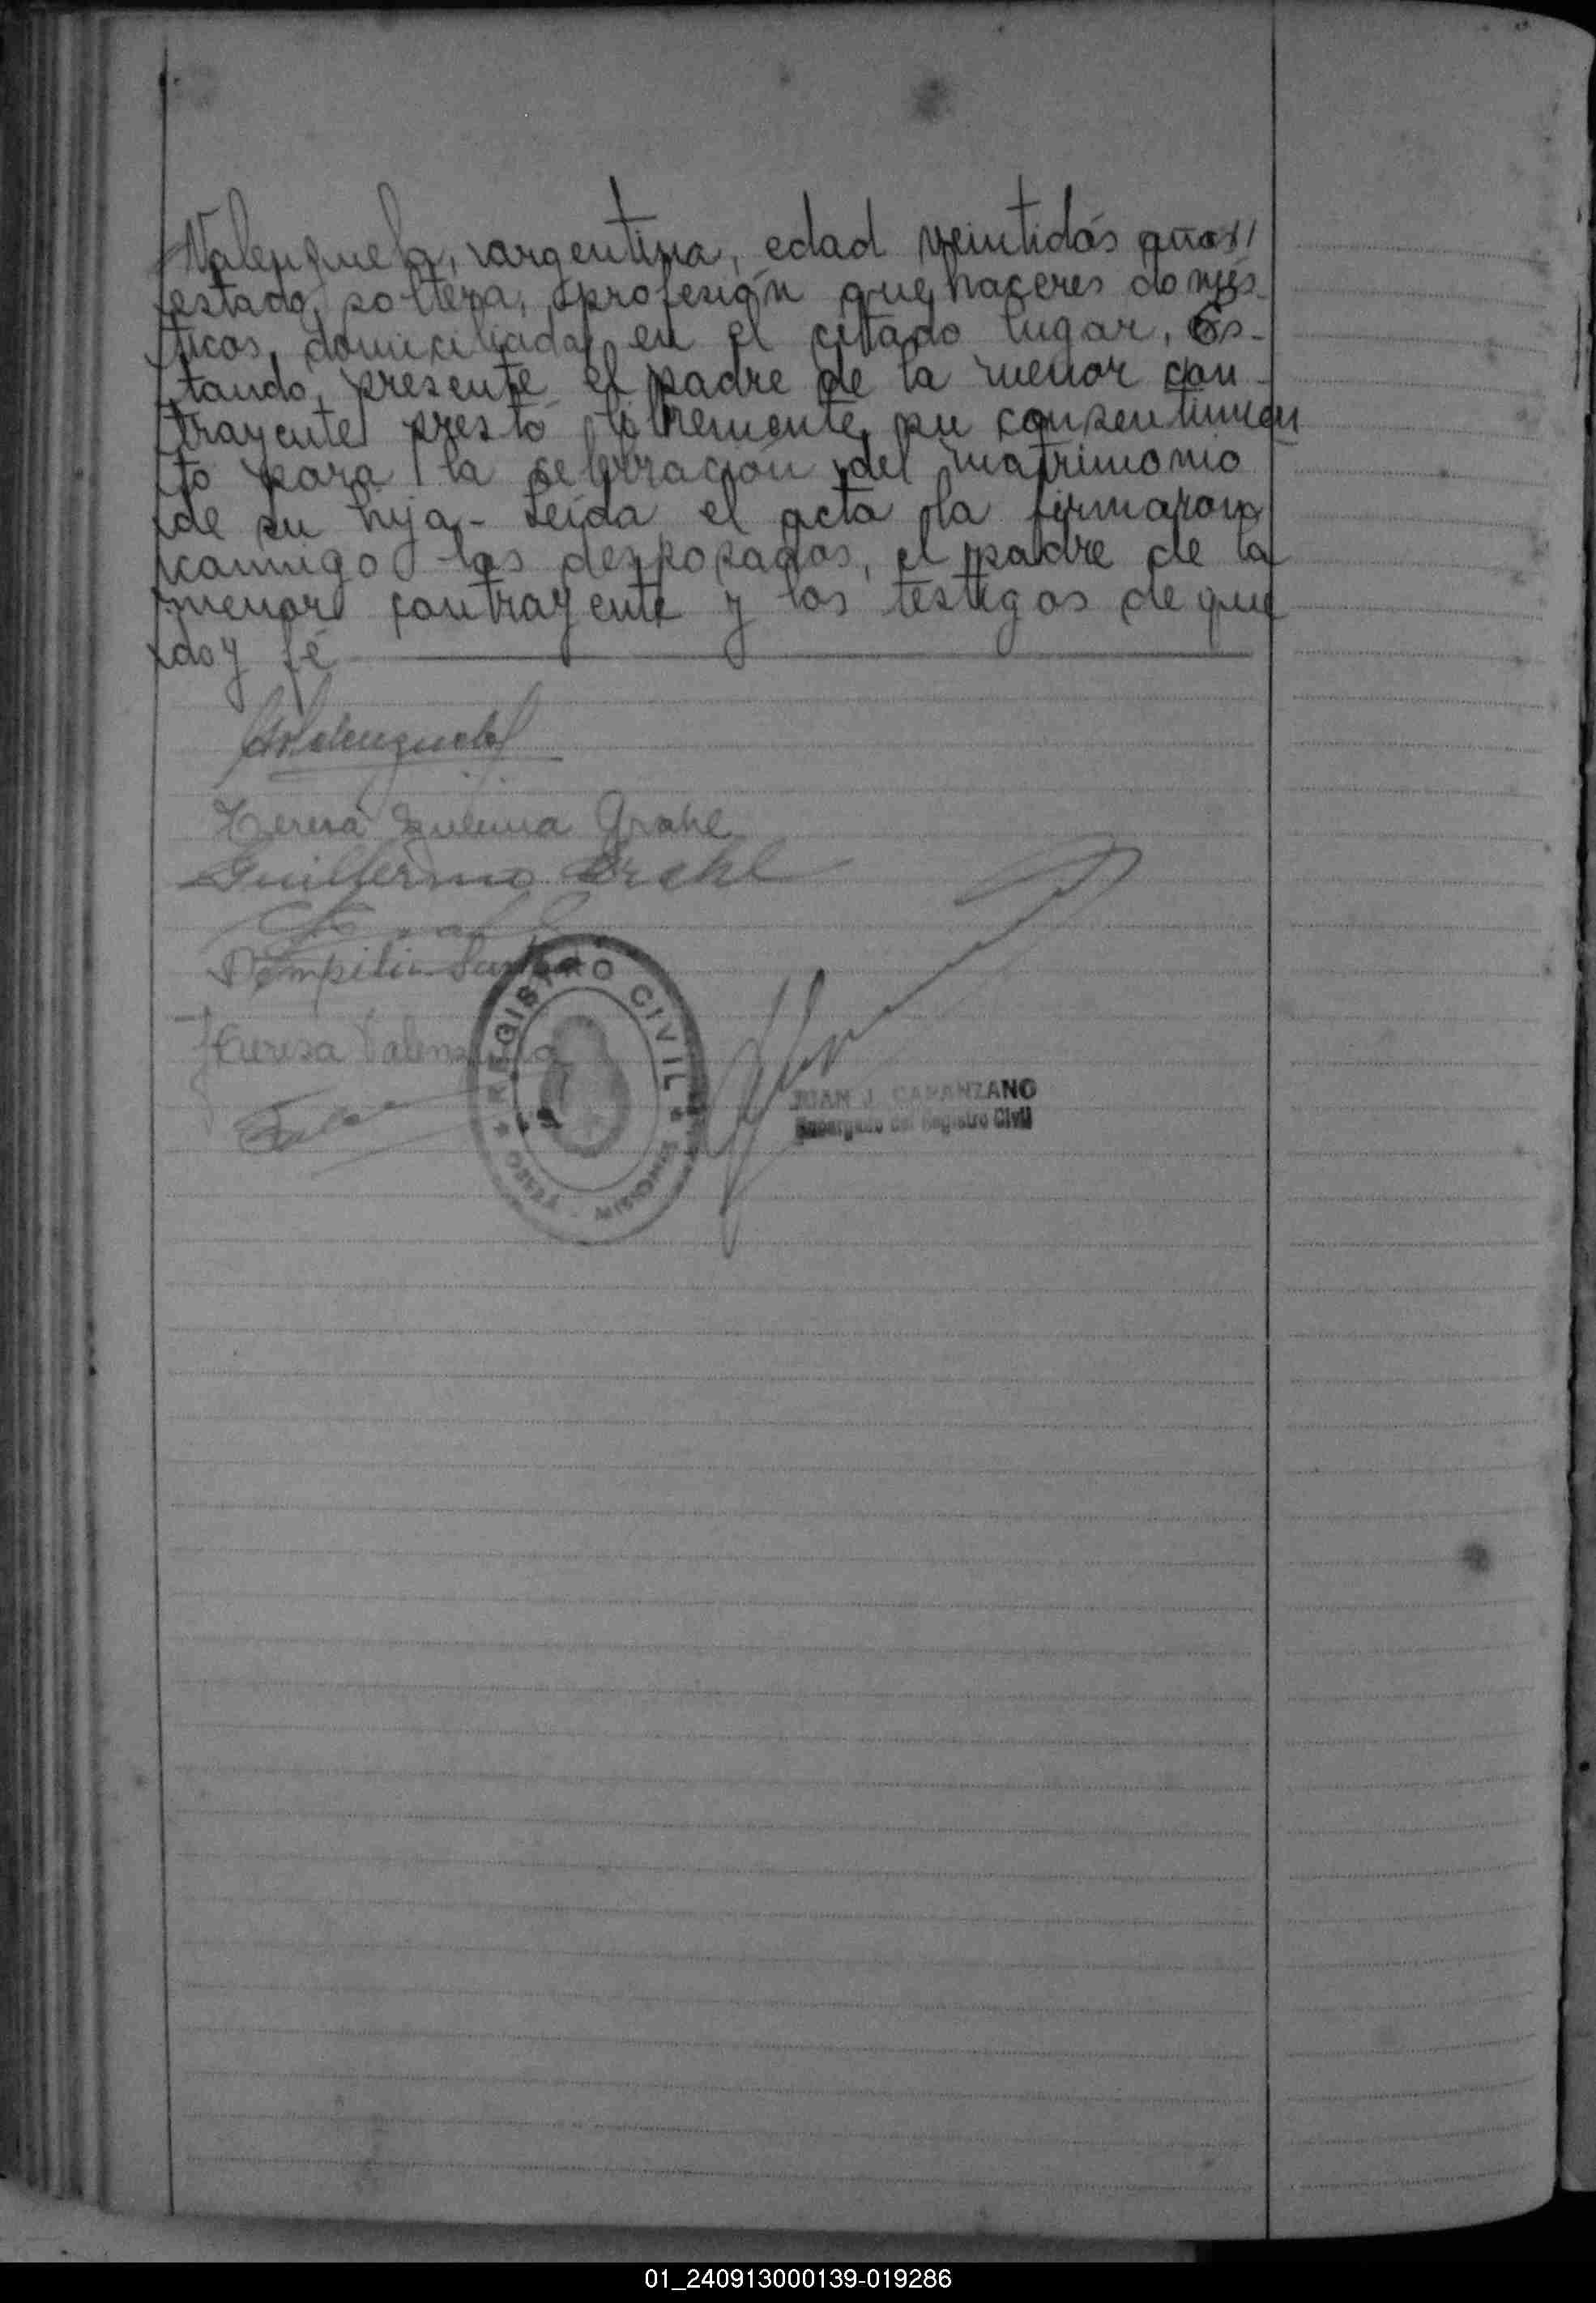 Valenzuela, argentina, edad veintidós años,
estado soltera, profesión quehaceres domés-
ticos, domiciliada en el citado lugar, Es-
tando presente el padre de la menor con-
trayente prestó libremente su consentimien
to para la celebración del matrimonio
de su hija.- Leída el acta la firmaron
conmigo los desposados, el padre de la
menor contrayente y los testigos de que
doy fé
Valenzuela
Teresa Zulema Grahl
Guillermo Grahl
Pompilio
Teresa Valenzuela
REGISTRO CIVIL
MISIONES
JUAN J. CARANZANO
Encargado del Registro Civil
01_240913000139-019286